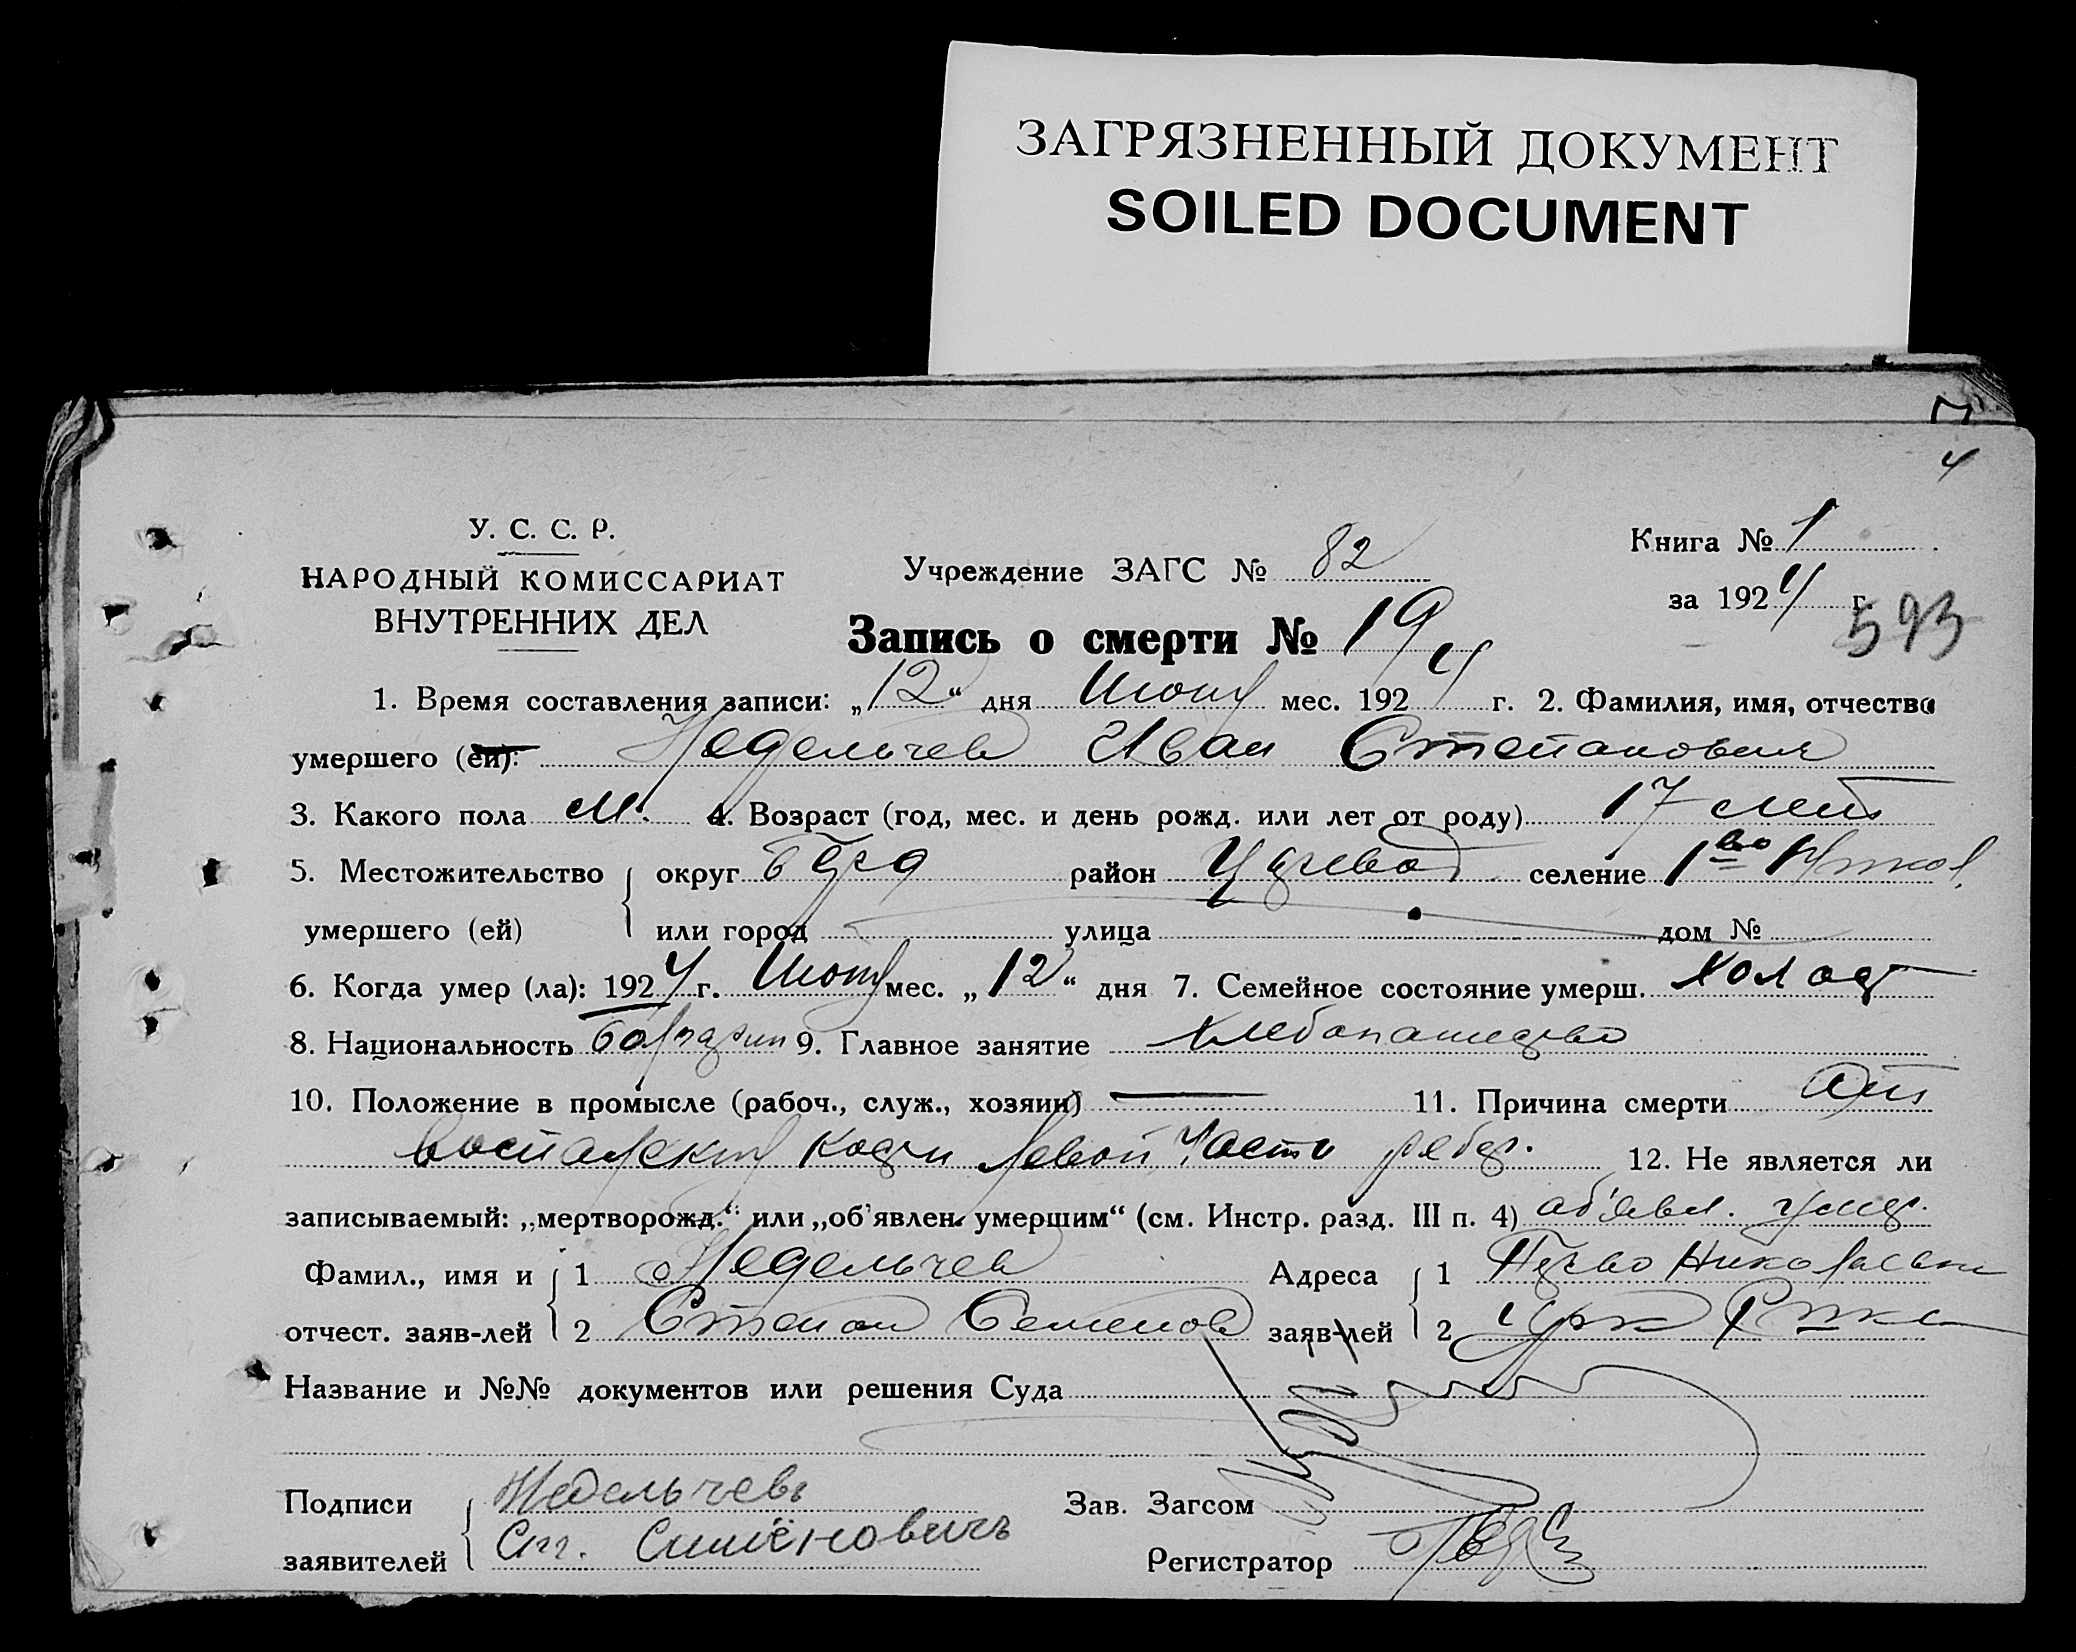 ЗАГРЯЗНЕННЫЙ ДОКУМЕНТ
SOILED DOCUMENT
4
У. С. С. Р.
НАРОДНЫЙ КОМИССАРИАТ
ВНУТРЕННИХ ДЕЛ
Учреждение ЗАГС № 82
Книга № 1
за 1924 г.
593
Запись о смерти № 19
1. Время составления записи: „12“ дня Июня мес. 1924 г. 2. Фамилия, имя, отчество
умершего (ей): Недельчев Иван Степанович
3. Какого пола м. 4. Возраст (год, мес. и день рожд. или лет от роду) 17 лет
5. Местожительство округ район селение 1во Никол.
умершего (ей) или город улица дом №
6. Когда умер (ла): 1924 г. Июня мес. „12“ дня 7. Семейное состояние умерш. холост
8. Национальность болгарин 9. Главное занятие хлебопашество
10. Положение в промысле (рабоч., служ., хозяин) — 11. Причина смерти От
левой части 12. Не является ли
записываемый: „мертворожд.“ или „об'явлен. умершим“ (см. Инстр. разд. III п. 4) об'явл. умер.
Фамил., имя и 1 Недельчев Адреса 1 Перво Николаевки
отчест. заяв-лей 2 Степан Семенов заяв-лей 2
Название и №№ документов или решения Суда
Подписи Недельчевъ Зав. Загсом
заявителей Ст. Симёновичъ Регистратор